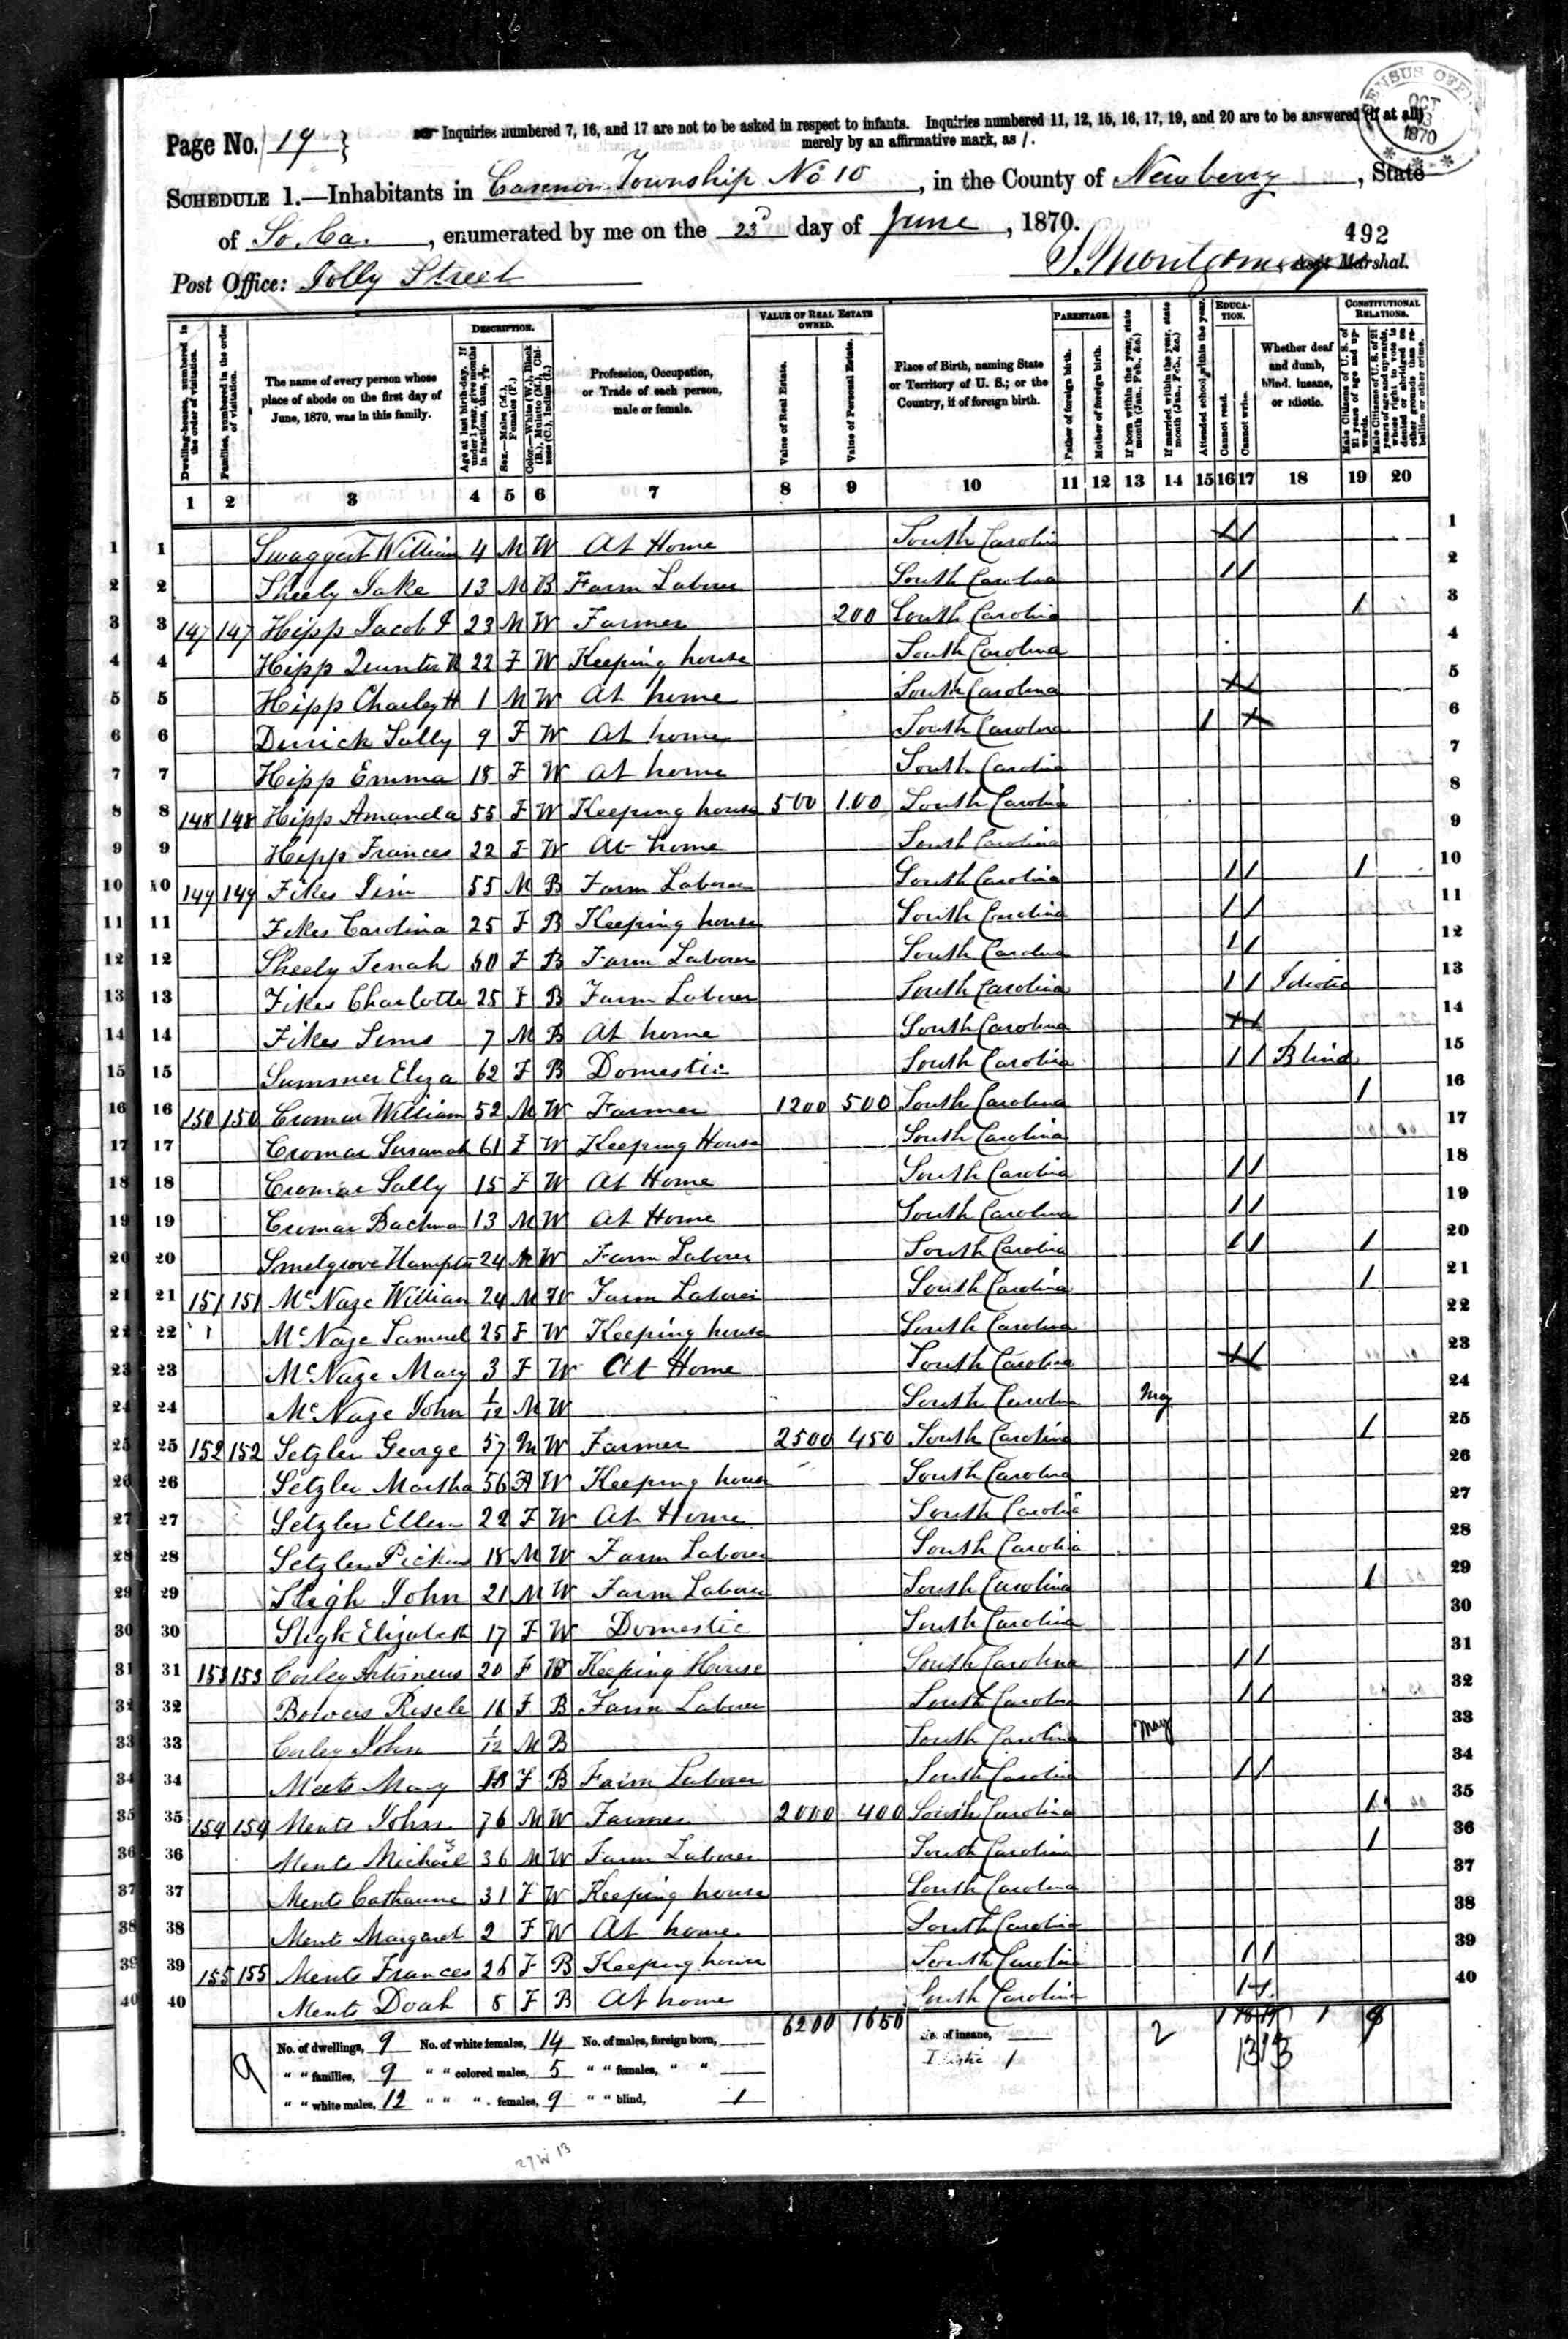 Page No. 19
Inquiries numbered 7, 16, and 17 are not to be asked in respect to infants. Inquiries numbered 11, 12, 15, 16, 17, 19, and 20 are to be answered (if at all)
merely by an affirmative mark, as /.
CENSUS OFFICE OCT 1870
SCHEDULE 1.—Inhabitants in Cannon Township No 10, in the County of Newberry, State
of So. Ca., enumerated by me on the 23d day of June, 1870.
492
Post Office: Jolly Street
S. Montgomery, Ass't Marshal.
Dwelling-houses, numbered in the order of visitation.
Families, numbered in the order of visitation.
The name of every person whose place of abode on the first day of June, 1870, was in this family.
DESCRIPTION.
Age at last birth-day. If under 1 year, give months in fractions, thus,
Sex.—Males (M.), Females (F.)
Color.—White (W.), Black (B.), Mulatto (M.), Chinese (C.), Indian (I.)
Profession, Occupation, or Trade of each person, male or female.
VALUE OF REAL ESTATE OWNED.
Value of Real Estate.
Value of Personal Estate.
Place of Birth, naming State or Territory of U. S.; or the Country, if of foreign birth.
PARENTAGE.
Father of foreign birth.
Mother of foreign birth.
If born within the year, state month (Jan., Feb., &c.)
If married within the year, state month (Jan., Feb., &c.)
Attended school within the year.
EDUCATION.
Cannot read.
Cannot write.
Whether deaf and dumb, blind, insane, or idiotic.
CONSTITUTIONAL RELATIONS.
Male Citizens of U. S. of 21 years of age and upwards.
Male Citizens of U. S. of 21 years of age and upwards, whose right to vote is denied or abridged on other grounds than rebellion or other crime.
1 2 3 4 5 6 7 8 9 10 11 12 13 14 15 16 17 18 19 20
1 1 Swaggert William 4 M W At Home South Carolina / / 1
2 2 Sheely Jake 13 M B Farm Laborer South Carolina / / 2
3 3 147 147 Hipp Jacob 23 M W Farmer 200 South Carolina / 3
4 4 Hipp 22 F W Keeping house South Carolina 4
5 5 Hipp Charley H 1 M W At home South Carolina / / 5
6 6 Derrick Sally 9 F W At home South Carolina / / 6
7 7 Hipp Emma 18 F W At home South Carolina 7
8 8 148 148 Hipp Amanda 55 F W Keeping house 500 100 South Carolina 8
9 9 Hipp Frances 22 F W At home South Carolina 9
10 10 149 149 Fikes Jim 55 M B Farm Laborer South Carolina / / / 10
11 11 Fikes Carolina 25 F B Keeping house South Carolina / / 11
12 12 Sheely Tenah 60 F B Farm Laborer South Carolina / / 12
13 13 Fikes Charlotte 25 F B Farm Laborer South Carolina / / Idiotic 13
14 14 Fikes Sims 7 M B At home South Carolina / / 14
15 15 Sumner Eliza 62 F B Domestic South Carolina / / Blind 15
16 16 150 150 Cromar William 52 M W Farmer 1200 500 South Carolina / 16
17 17 Cromar Susanah 61 F W Keeping House South Carolina 17
18 18 Cromar Sally 15 F W At Home South Carolina / / 18
19 19 Cromar Bachman 13 M W At Home South Carolina / / 19
20 20 Smelgrove Hampton 24 M W Farm Laborer South Carolina / / / 20
21 21 151 151 McNaze William 24 M W Farm Laborer South Carolina / 21
22 22 McNaze Samuel 25 F W Keeping house South Carolina 22
23 23 McNaze Mary 3 F W At Home South Carolina / / 23
24 24 McNaze John 1/12 M W South Carolina May 24
25 25 152 152 Setzler George 57 M W Farmer 2500 450 South Carolina / 25
26 26 Setzler Martha 56 F W Keeping house South Carolina 26
27 27 Setzler Ellen 22 F W At Home South Carolina 27
28 28 Setzler Pickens 18 M W Farm Laborer South Carolina 28
29 29 Sligh John 21 M W Farm Laborer South Carolina / 29
30 30 Sligh Elizabeth 17 F W Domestic South Carolina 30
31 31 153 153 Corley 20 F B Keeping House South Carolina / / 31
32 32 Bowers 16 F B Farm Laborer South Carolina / / 32
33 33 Corley John 1/12 M B South Carolina May 33
34 34 Meets Mary 18 F B Farm Laborer South Carolina / / 34
35 35 154 154 Ments John 76 M W Farmer 2000 400 South Carolina / 35
36 36 Ments Michael 36 M W Farm Laborer South Carolina / 36
37 37 Ments Catharine 31 F W Keeping house South Carolina 37
38 38 Ments Margaret 2 F W At home South Carolina 38
39 39 155 155 Ments Frances 26 F B Keeping house South Carolina / / 39
40 40 Ments Doah 8 F B At home South Carolina / / 40
9 No. of dwellings, 9 No. of white females, 14 No. of males, foreign born, 6200 1650 No. of insane, 2
" " families, 9 " " colored males, 5 " " females, " " Idiotic 1
" " white males, 12 " " " females, 9 " " blind, 1
27 W 13